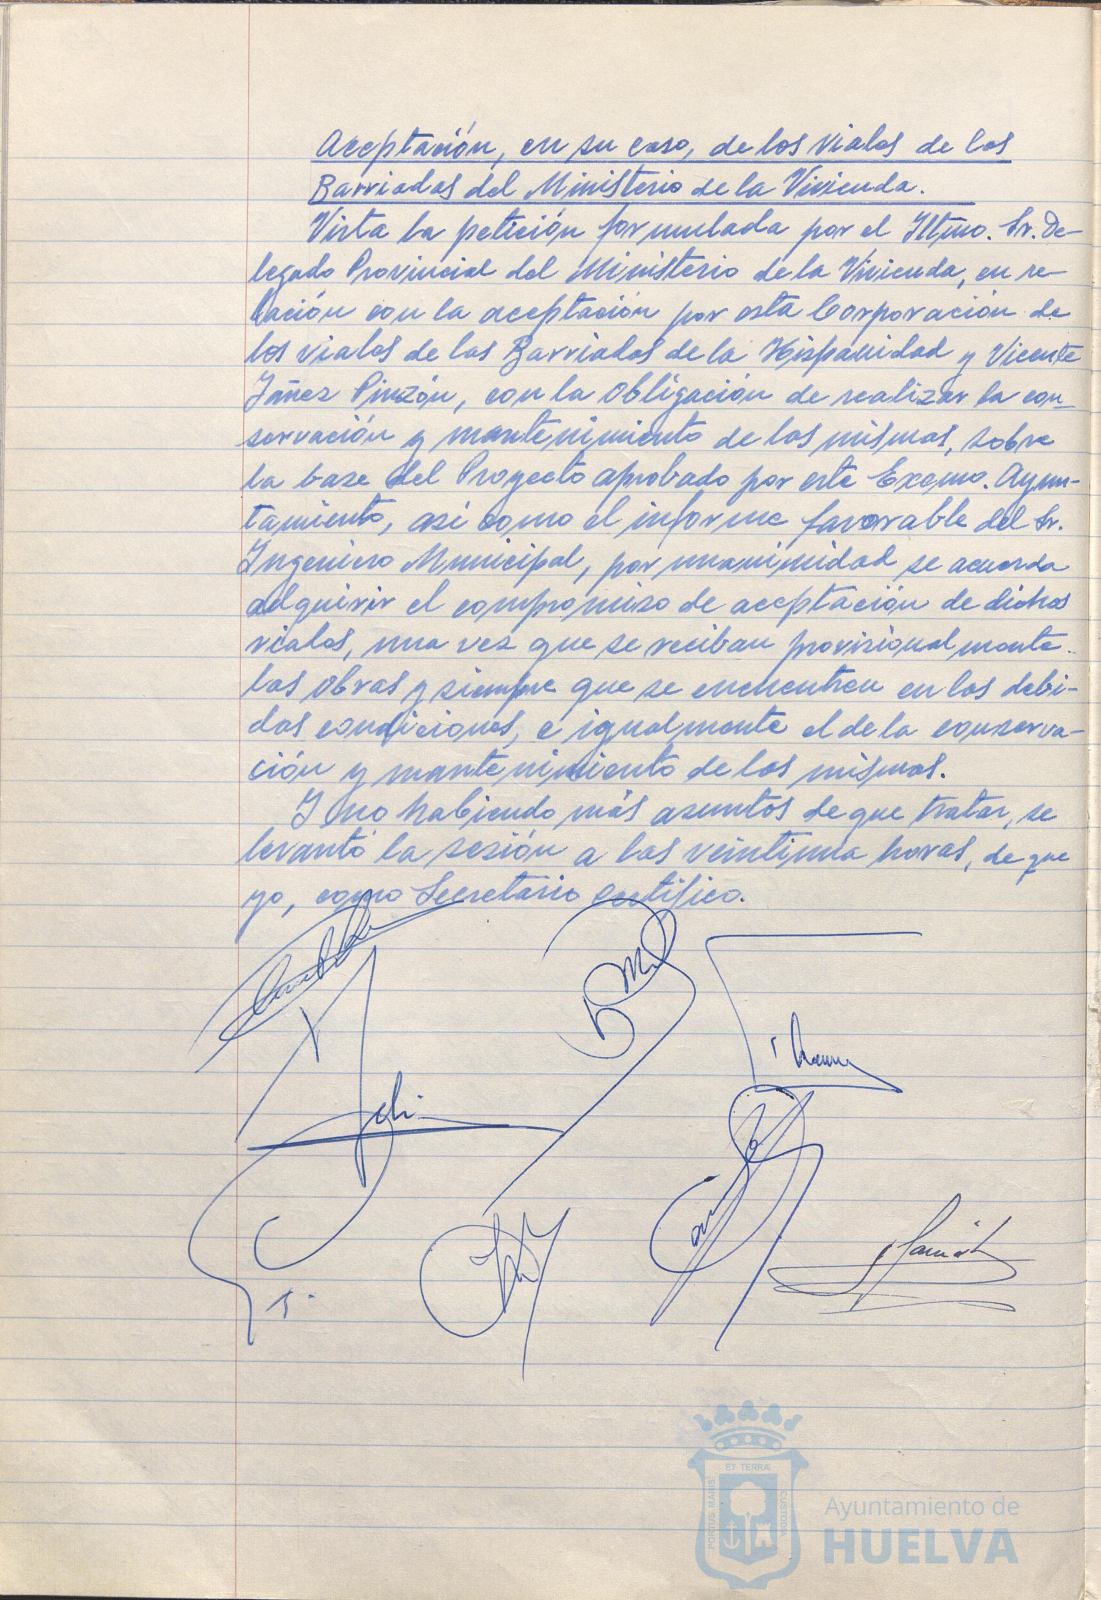 Aceptación, en su caso, de los viales de las
Barriadas del Ministerio de la Vivienda.
Vista la petición formulada por el Iltmo. Sr. De-
legado Provincial del Ministerio de la Vivienda, en re-
lación con la aceptación por esta Corporación de
los viales de las Barriadas de la Hispanidad y Vicente
Yañez Pinzón, con la obligación de realizar la con-
servación y mantenimiento de los mismos, sobre
la base del Proyecto aprobado por este Excmo. Ayun-
tamiento, así como el informe favorable del Sr.
Ingeniero Municipal, por unanimidad se acuerda
adquirir el compromiso de aceptación de dichos
viales, una vez que se reciban provisionalmente
las obras y siempre que se encuentren en las debi-
das condiciones, e igualmente el de la conserva-
ción y mantenimiento de los mismos.
Y no habiendo más asuntos de que tratar, se
levantó la sesión a las veintiuna horas, de que
yo, como Secretario certifico.
ET TERRAE
PORTUS MARIS
CUSTODIA
Ayuntamiento de
HUELVA